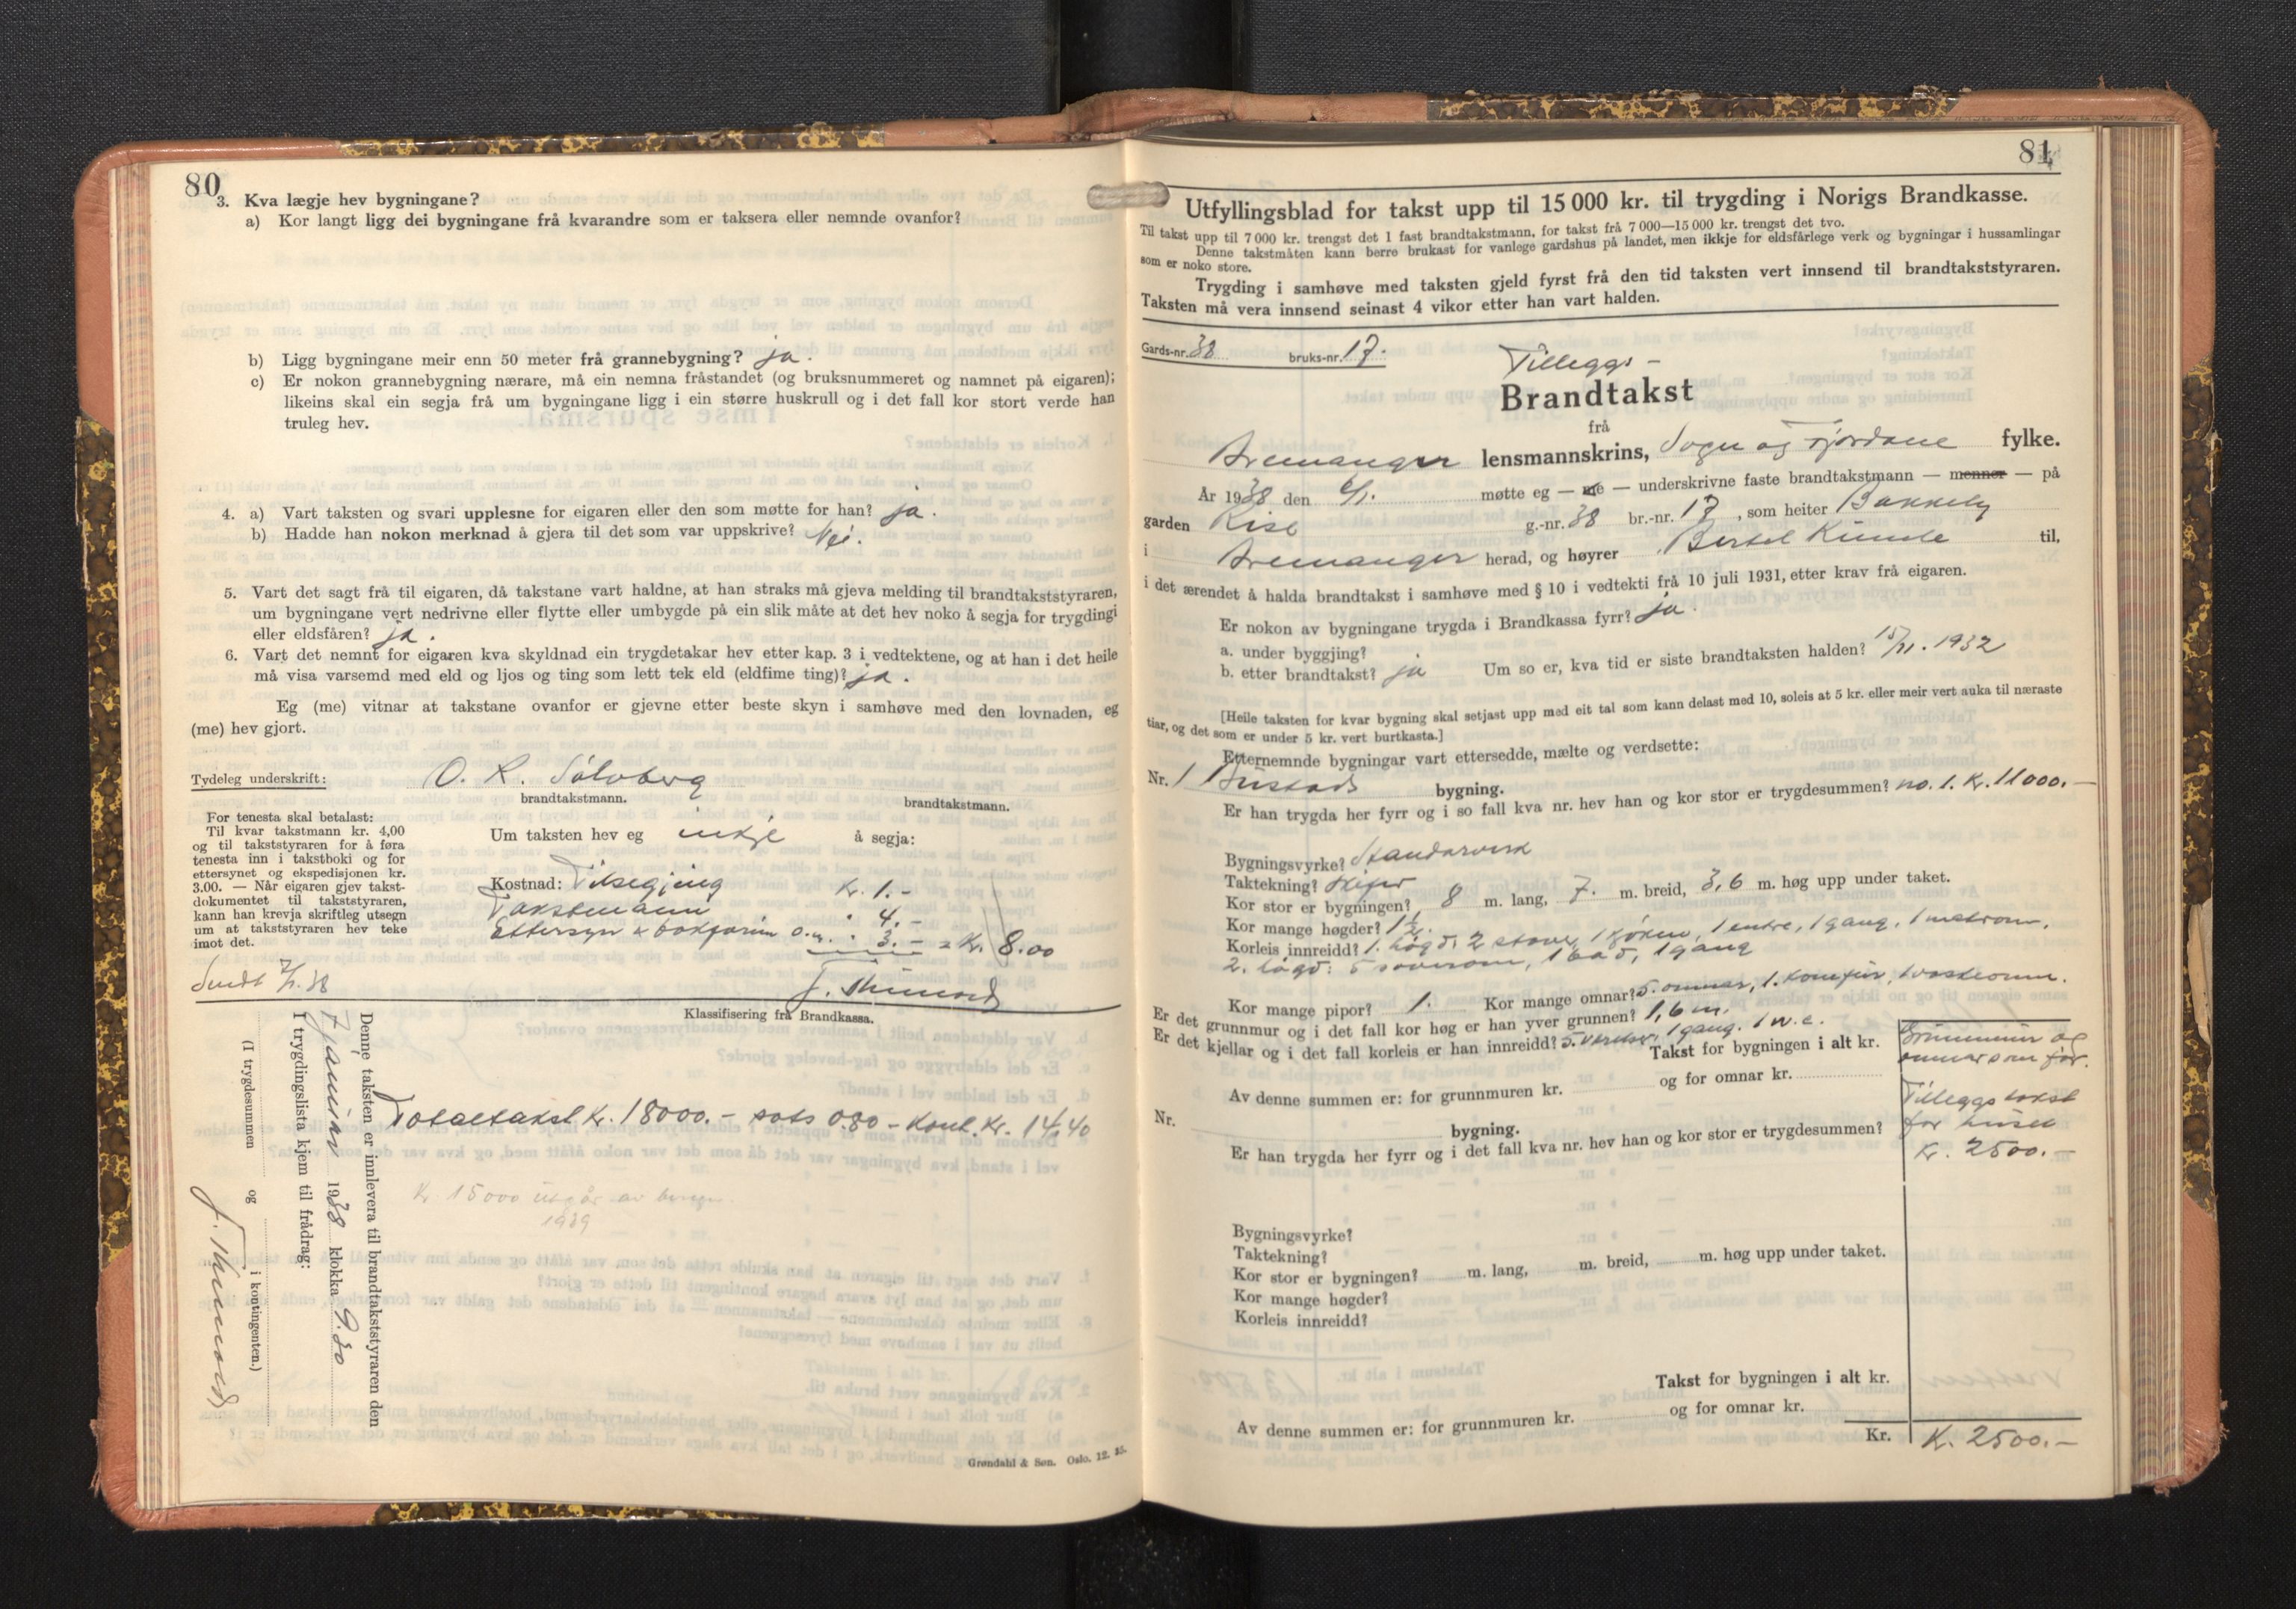 80
3. Kva lægje hev bygningane?
a) Kor langt ligg dei bygningane frå kvarandre som er taksera eller nemnde ovanfor?
b) Ligg bygningane meir enn 50 meter frå grannebygning? ja.
c) Er nokon grannebygning nærare, må ein nemna fråstandet (og bruksnummeret og namnet på eigaren);
likeins skal ein segja frå um bygningane ligg i ein større huskrull og i det fall kor stort verde han
truleg hev.
4. a) Vart taksten og svari upplesne for eigaren eller den som møtte for han? ja.
b) Hadde han nokon merknad å gjera til det som var uppskrive? Nei.
5. Vart det sagt frå til eigaren, då takstane vart haldne, at han straks må gjeva melding til brandtakststyraren,
um bygningane vert nedrivne eller flytte eller umbygde på ein slik måte at det hev noko å segja for trygdingi
eller eldsfåren? ja.
6. Vart det nemnt for eigaren kva skyldnad ein trygdetakar hev etter kap. 3 i vedtektene, og at han i det heile
må visa varsemd med eld og ljos og ting som lett tek eld (eldfime ting)? ja.
Eg (me) vitnar at takstane ovanfor er gjevne etter beste skyn i samhøve med den lovnaden, eg
(me) hev gjort.
Tydeleg underskrift: O. R. Sölvberg
brandtakstmann. brandtakstmann.
For tenesta skal betalast:
Til kvar takstmann kr. 4,00
og til takststyraren for å føra
tenesta inn i takstboki og for
ettersynet og ekspedisjonen kr.
3.00. — Når eigaren gjev takst-
dokumentet til takststyraren,
kann han krevja skriftleg utsegn
um at takststyraren hev teke
imot det.
Um taksten hev eg inkje å segja:
Kostnad: Tilsegjing Kr. 1.-
Takstmann " 4.-
Ettersyn & bokføring o.m. " 3.- = Kr. 8.00
Sendt 7/1.38
Klassifisering frå Brandkassa.
Denne taksten er innlevera til brandtakststyraren den
7 januar 1938 klokka 9.30
I trygdingslista kjem til frådrag:
(I trygdesummen og i kontingenten.)
Totaltakst Kr. 18000.- sats 0.80 - Kont. Kr. 14.40
Kr. 15000 utgår av
1939
Grøndahl & Søn. Oslo. 12. 35.
81
Utfyllingsblad for takst upp til 15 000 kr. til trygding i Norigs Brandkasse.
Til takst upp til 7 000 kr. trengst det 1 fast brandtakstmann, for takst frå 7 000—15 000 kr. trengst det tvo.
Denne takstmåten kann berre brukast for vanlege gardshus på landet, men ikkje for eldsfårlege verk og bygningar i hussamlingar
som er noko store.
Trygding i samhøve med taksten gjeld fyrst frå den tid taksten vert innsend til brandtakststyraren.
Taksten må vera innsend seinast 4 vikor etter han vart halden.
Gards-nr. 38 bruks-nr. 17.
Tilleggs-
Brandtakst
frå
Bremanger lensmannskrins, Sogn og Fjordane fylke.
År 1938 den 6/1. møtte eg — me — underskrivne faste brandtakstmann — menner — på
garden Rise g.-nr. 38 br.-nr. 17, som heiter Bakkely
i Bremanger herad, og høyrer Bertel til,
i det ærendet å halda brandtakst i samhøve med § 10 i vedtekti frå 10 juli 1931, etter krav frå eigaren.
Er nokon av bygningane trygda i Brandkassa fyrr? ja.
a. under byggjing?
b. etter brandtakst? ja Um so er, kva tid er siste brandtaksten halden? 15/11. 1932
[Heile taksten for kvar bygning skal setjast upp med eit tal som kann delast med 10, soleis at 5 kr. eller meir vert auka til næraste
tiar, og det som er under 5 kr. vert burtkasta.]
Etternemnde bygningar vart ettersedde, mælte og verdsette:
Nr. 1 Bustads bygning.
Er han trygda her fyrr og i so fall kva nr. hev han og kor stor er trygdesummen? no. 1. Kr. 11000.-
Bygningsvyrke? Standarverk
Taktekning? skifer
Kor stor er bygningen? 8 m. lang, 7. m. breid, 3,6 m. høg upp under taket.
Kor mange høgder? 1½.
Korleis innreidd? 1. høgd: 2 stover, 1 kjøken, 1 entre, 1 gang, 1 matrom.
2. høgd: 5 soverom, 1 bad, 1 gang
Kor mange pipor? 1. Kor mange omnar? 5. omnar, 1. komfur, 1 vaskeomn.
Er det grunnmur og i det fall kor høg er han yver grunnen? 1,6 m.
Er det kjellar og i det fall korleis er han innreidd? 5. verelser, 1 gang. 1 w.c.
Takst for bygningen i alt kr.
Grunnmur og
omnar som før.
Av denne summen er: for grunnmuren kr. og for omnar kr.
Tilleggstakst
for huset
Kr. 2500.-
Nr. bygning.
Er han trygda her fyrr og i det fall kva nr. hev han og kor stor er trygdesummen?
Bygningsvyrke?
Taktekning?
Kor stor er bygningen? m. lang, m. breid, m. høg upp under taket.
Kor mange høgder?
Korleis innreidd?
Takst for bygningen i alt kr.
Av denne summen er: for grunnmuren kr. og for omnar kr.
Kr. Kr. 2500.-